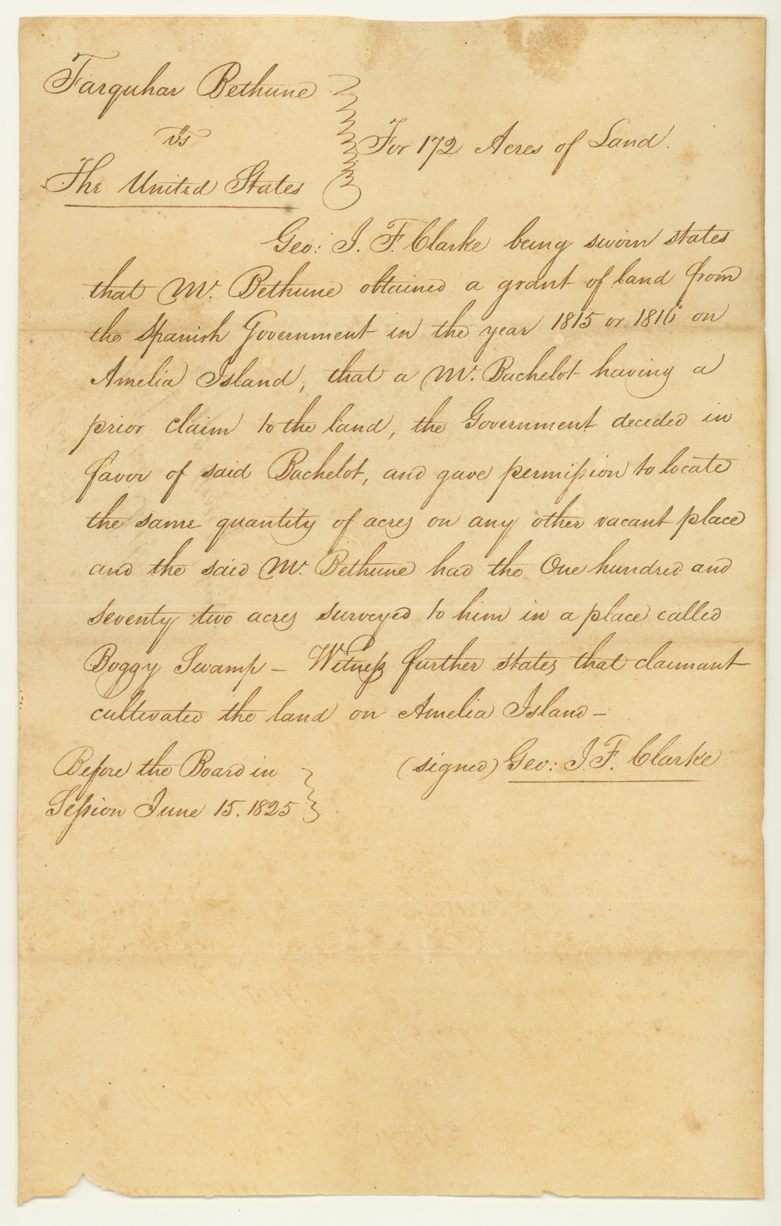 Farquhar Bethune
vs
The United States
For 172 Acres of Land.
Geo: J. F. Clarke being sworn states
that Mr. Bethune obtained a grant of land from
the Spanish Government in the year 1815 or 1816 on
Amelia Island, that a Mr. Bachelot having a
prior claim to the land, the Government decided in
favor of said Bachelot, and gave permission to locate
the same quantity of acres on any other vacant place
and the said Mr. Bethune had the One hundred and
seventy two acres surveyed to him in a place called
Boggy Swamp — Witness further states that claimant
cultivated the land on Amelia Island —
(signed) Geo: J. F. Clarke
Before the Board in
Session June 15. 1825